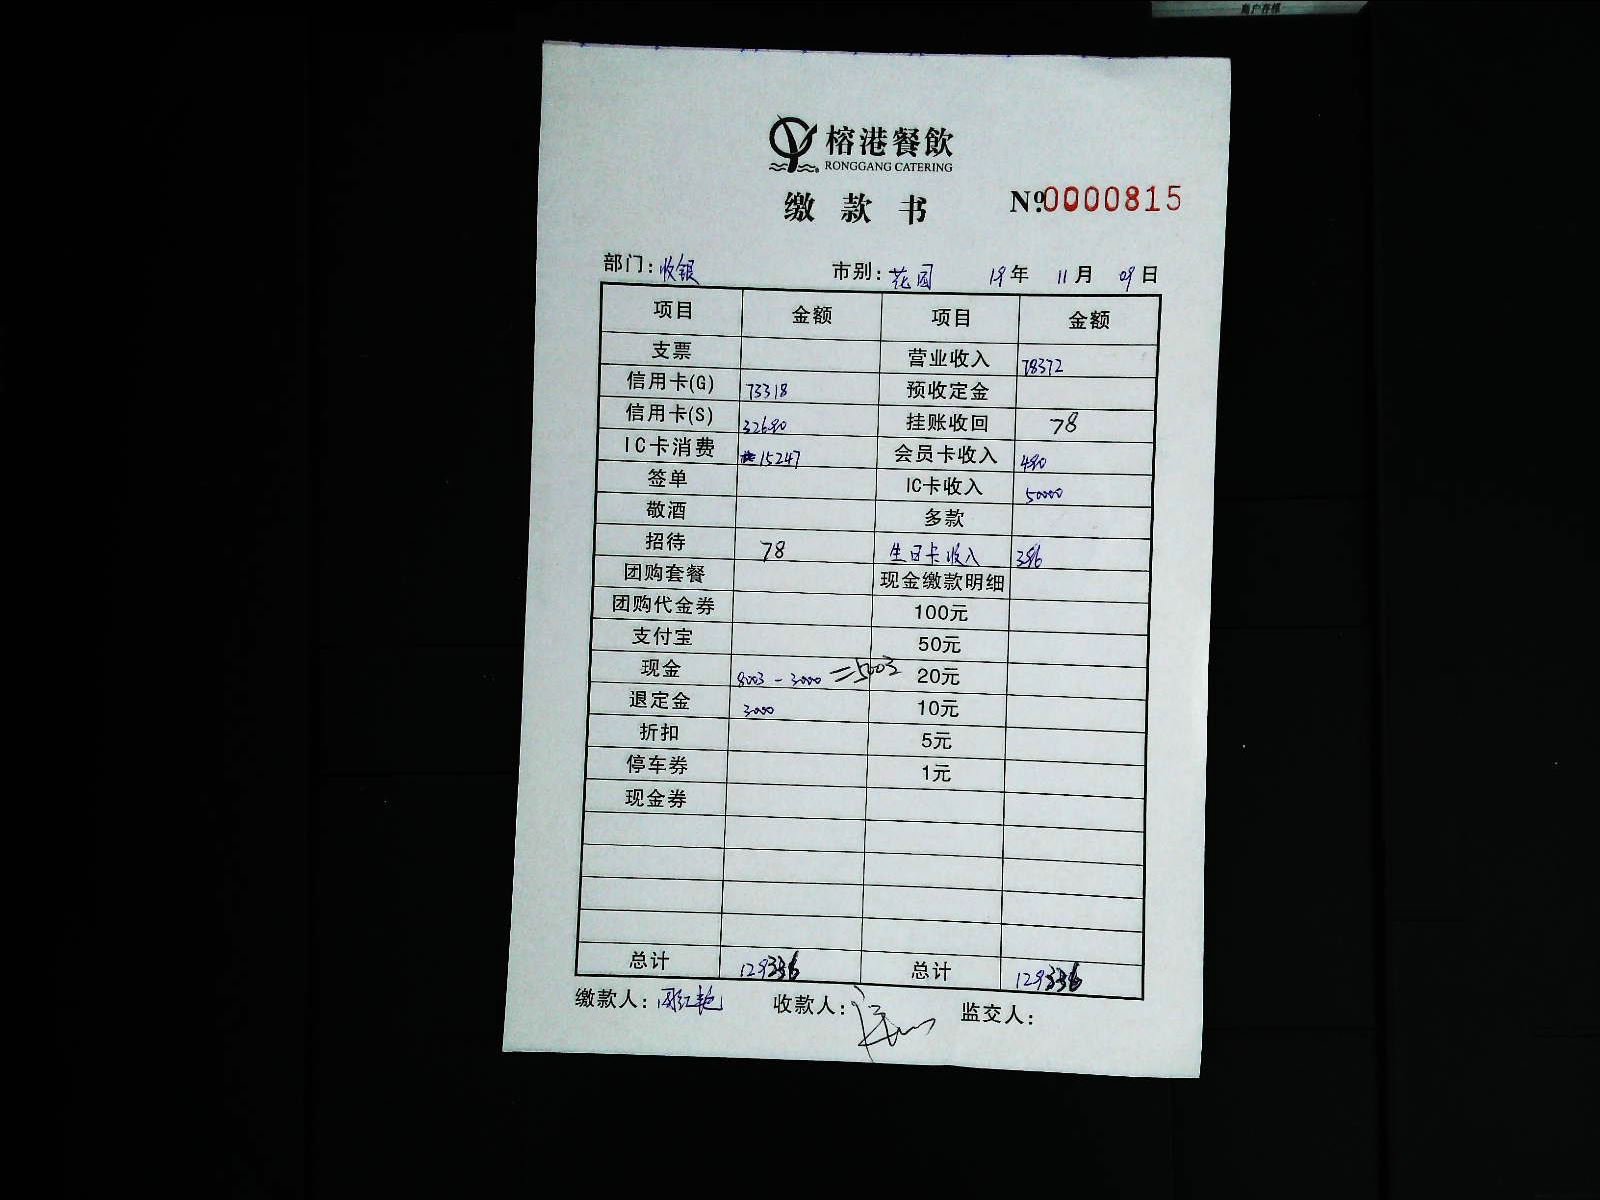 商户存根
榕港餐飲
RONGGANG CATERING
缴款书 Nº0000815
部门:收银 市别:花园 19年 11月 09日
项目 金额 项目 金额
支票 营业收入 78372
信用卡(G) 73318 预收定金
信用卡(S) 32690 挂账收回 78
IC卡消费 15247 会员卡收入 490
签单 IC卡收入 50000
敬酒 多款
招待 78 生日卡收入 396
团购套餐 现金缴款明细
团购代金券 100元
支付宝 50元
现金 8003-3000=5003 20元
退定金 3000 10元
折扣 5元
停车券 1元
现金券
总计 129336 总计 129336
缴款人: 收款人: 监交人: